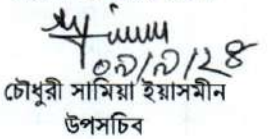 ০৯/১/২৪
চৌধুরী সামিয়া ইয়াসমীন
উপসচিব